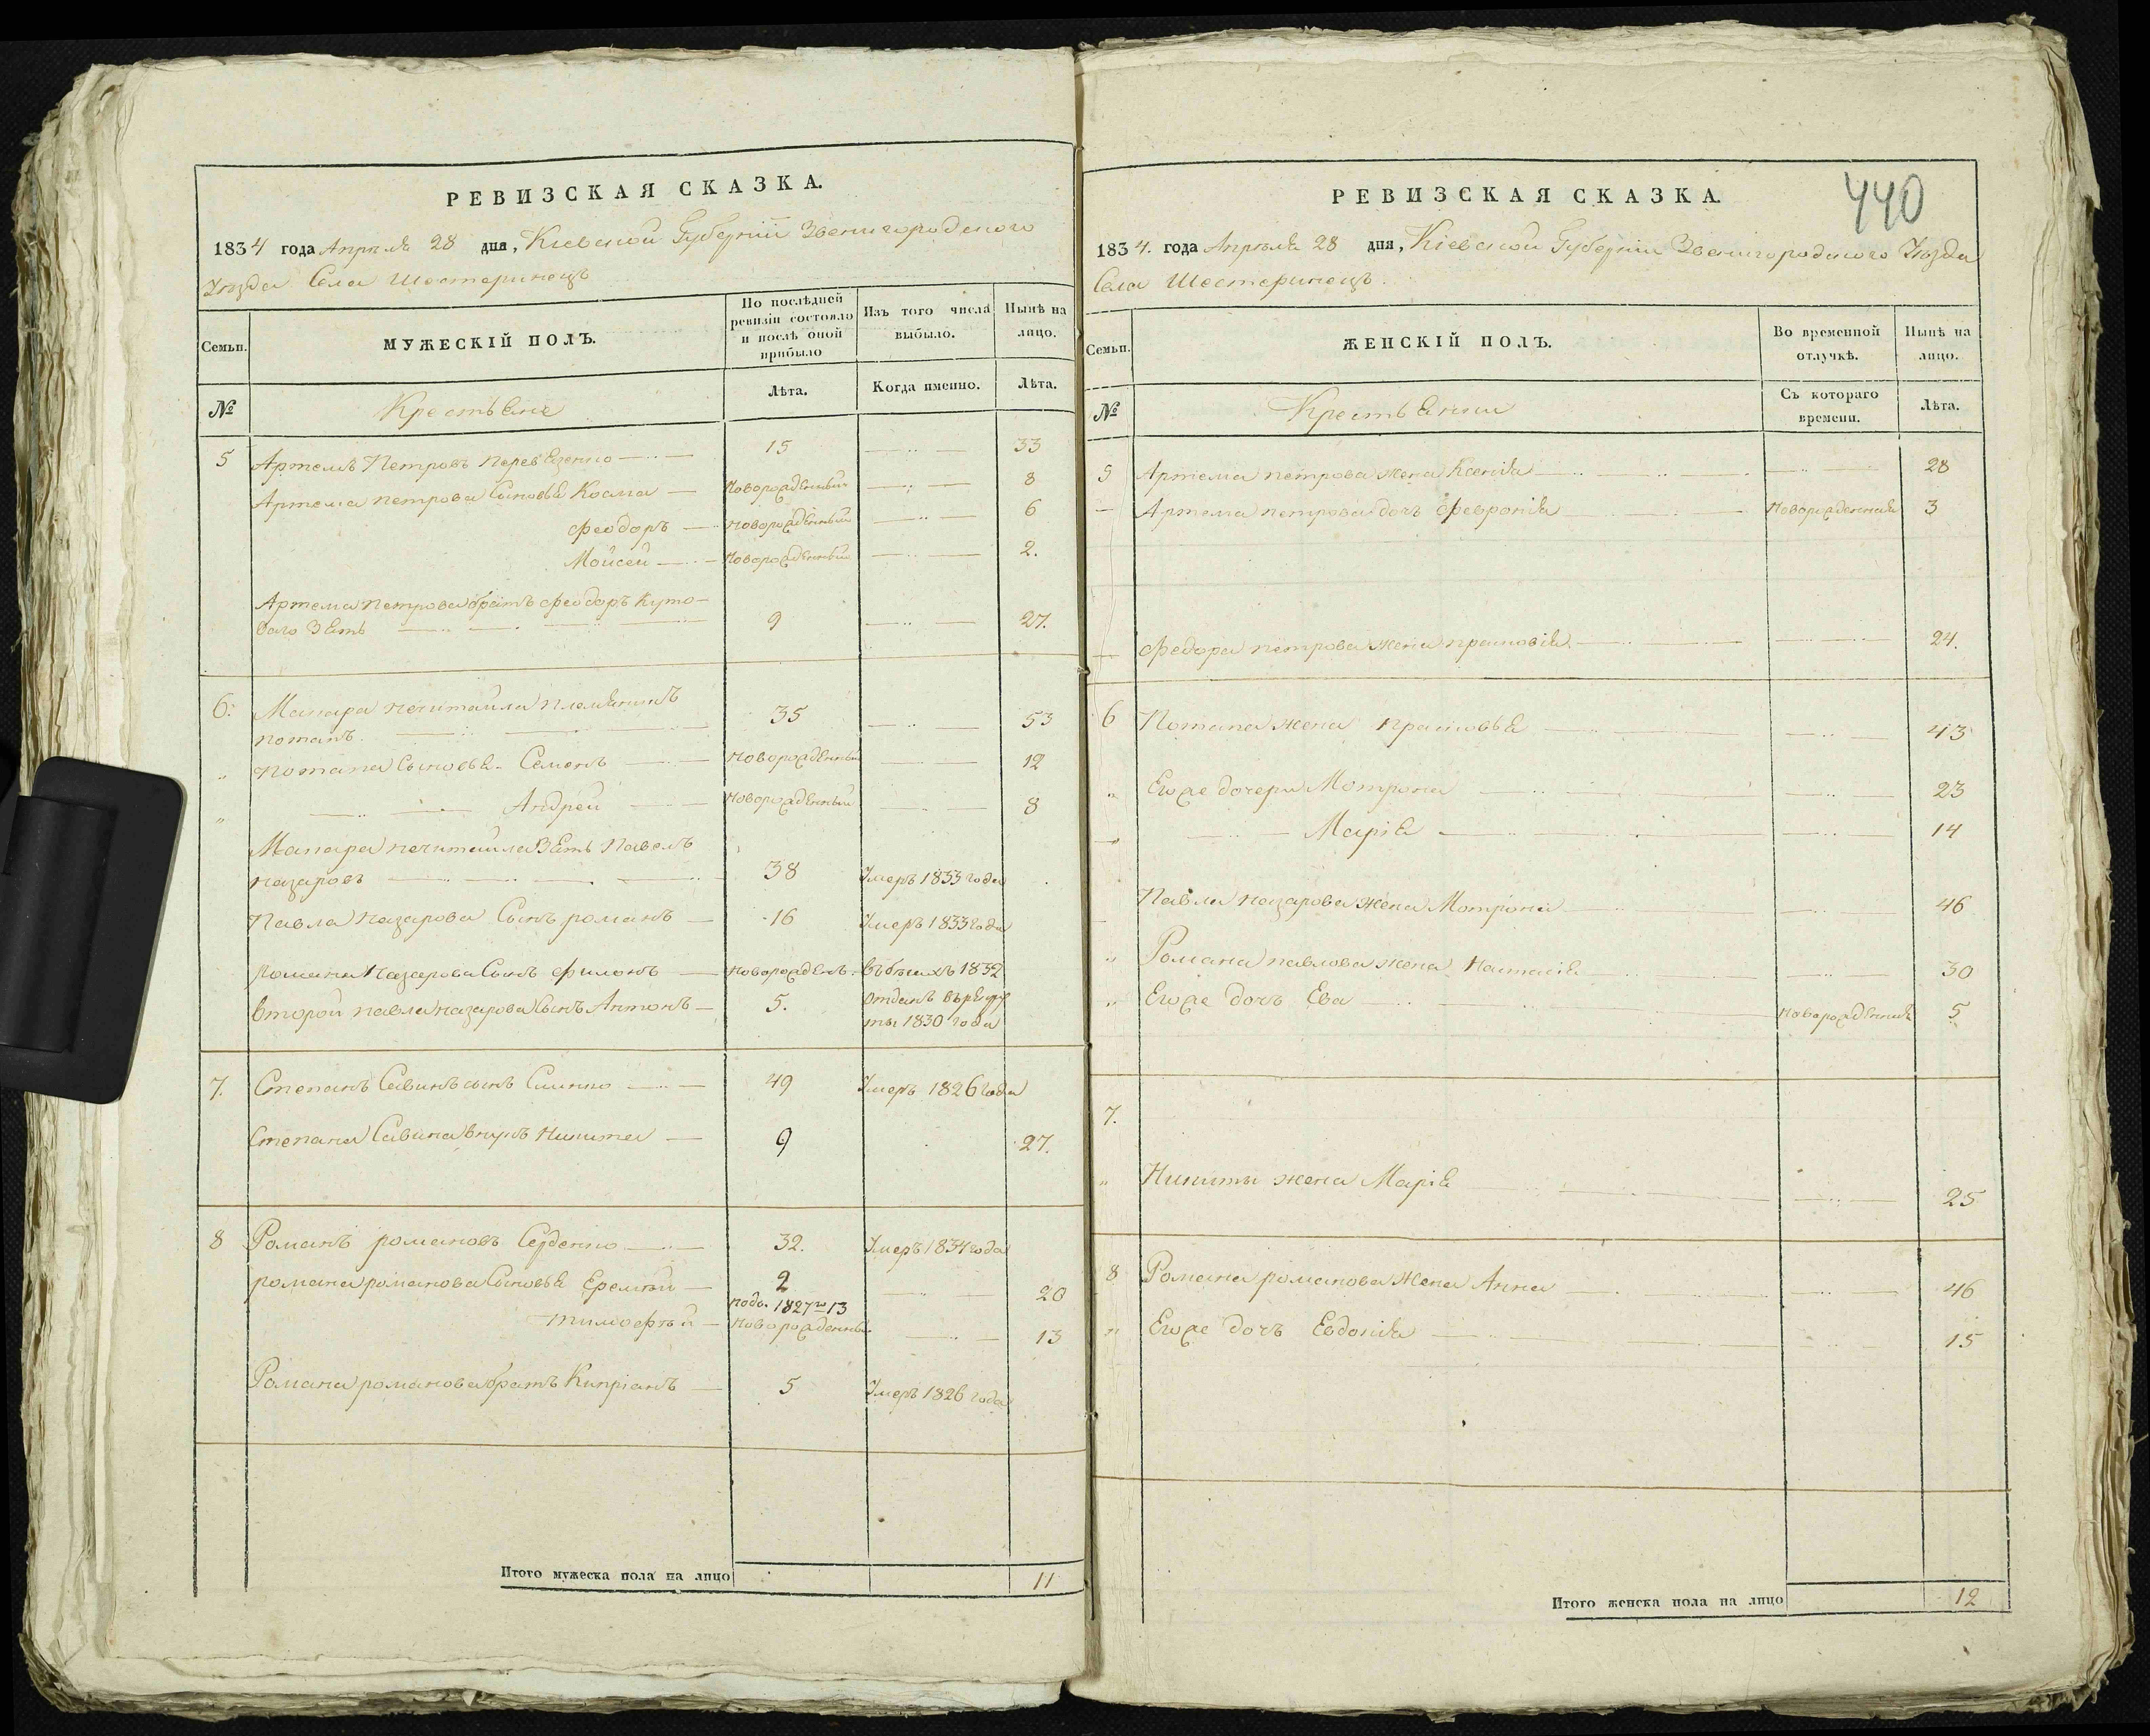 РЕВИЗСКАЯ СКАЗКА.
1834 года Апрѣля 28 дня, Кіевской Губерніи Звенигородского
Уѣзда Села Шестеринецъ
Семьи.
МУЖЕСКІЙ ПОЛЪ.
По послѣдней ревизіи состояло и послѣ оной прибыло
Изъ того числа выбыло.
Нынѣ на лицо.
№
Крестьяне
Лѣта.
Когда именно.
Лѣта.
5 Артемъ Петровъ 15 33
Артема петрова Сыновья Козма Новорожденный 8
Феодоръ новорожденный 6
Мойсей Новорожденный 2.
Артема Петрова братъ Феодоръ Куто-
ваго Зять 9 27.
6: Макара нечитайла племянникъ
потапъ. 35 53
„ потапа Сыновья Семенъ Новорожденный 12
„ Андрей Новорожденный 8
Макара нечитайла Зять Павелъ
назаровъ 38 Умеръ 1833 года
Павла Назарова Сынъ романъ 16 Умеръ 1833 года
романа Назарова Сынъ филонъ новорожден. въ бѣгахъ 1832
второй павла назарова Сынъ Антонъ 5. отданъ въ рекру
ты 1830 года
7. Степанъ Савинъ сынъ 49 Умеръ 1826 года
Степана Савина внукъ Никита 9 27.
8 Романъ романовъ Серденко 32. Умеръ 1834 года
романа романова Сыновья Еремѣй 2 20
1827го 13
тимофѣй Новорожденный 13
Романа романова братъ Кипріанъ 5 Умеръ 1826 года
Итого мужеска пола на лицо 11
440
РЕВИЗСКАЯ СКАЗКА.
1834. года Апрѣля 28 дня, Кіевской Губерніи Звенигородского Уѣзда
Села Шестеринецъ.
Семьи.
ЖЕНСКІЙ ПОЛЪ.
Во временной отлучкѣ.
Нынѣ на лицо.
№
Крестьянки
Съ котораго времени.
Лѣта.
5 Артема петрова жена Ксенія 28
Артема петрова дочь Февронія Новорожденная 3
Федора петрова жена прасковія 24.
6 Потапа жена прасковья 43
„ Егоже дочери Мотрона 23
Марія 14
Павла назарова жена Мотрона 46
„ Романа павлова жена Настасія 30
„ Егоже дочь Ева Новорожденная 5
7.
„ Никиты жена Марія 25
8 Романа романова жена Анна 46
„ Егоже дочь Евдокія 15
Итого женска пола на лицо 12